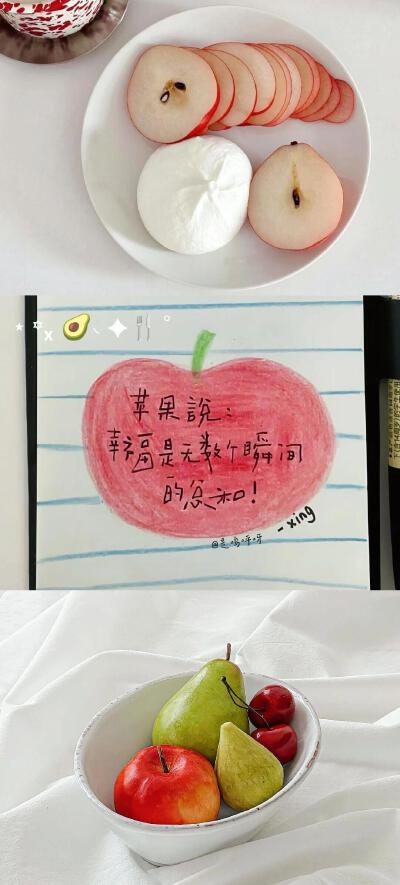 苹果説:
幸福是无数个瞬间
的总和!
- xing
@是呜呼呀